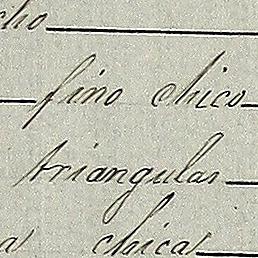 cho
fino chico
triangular
a chica